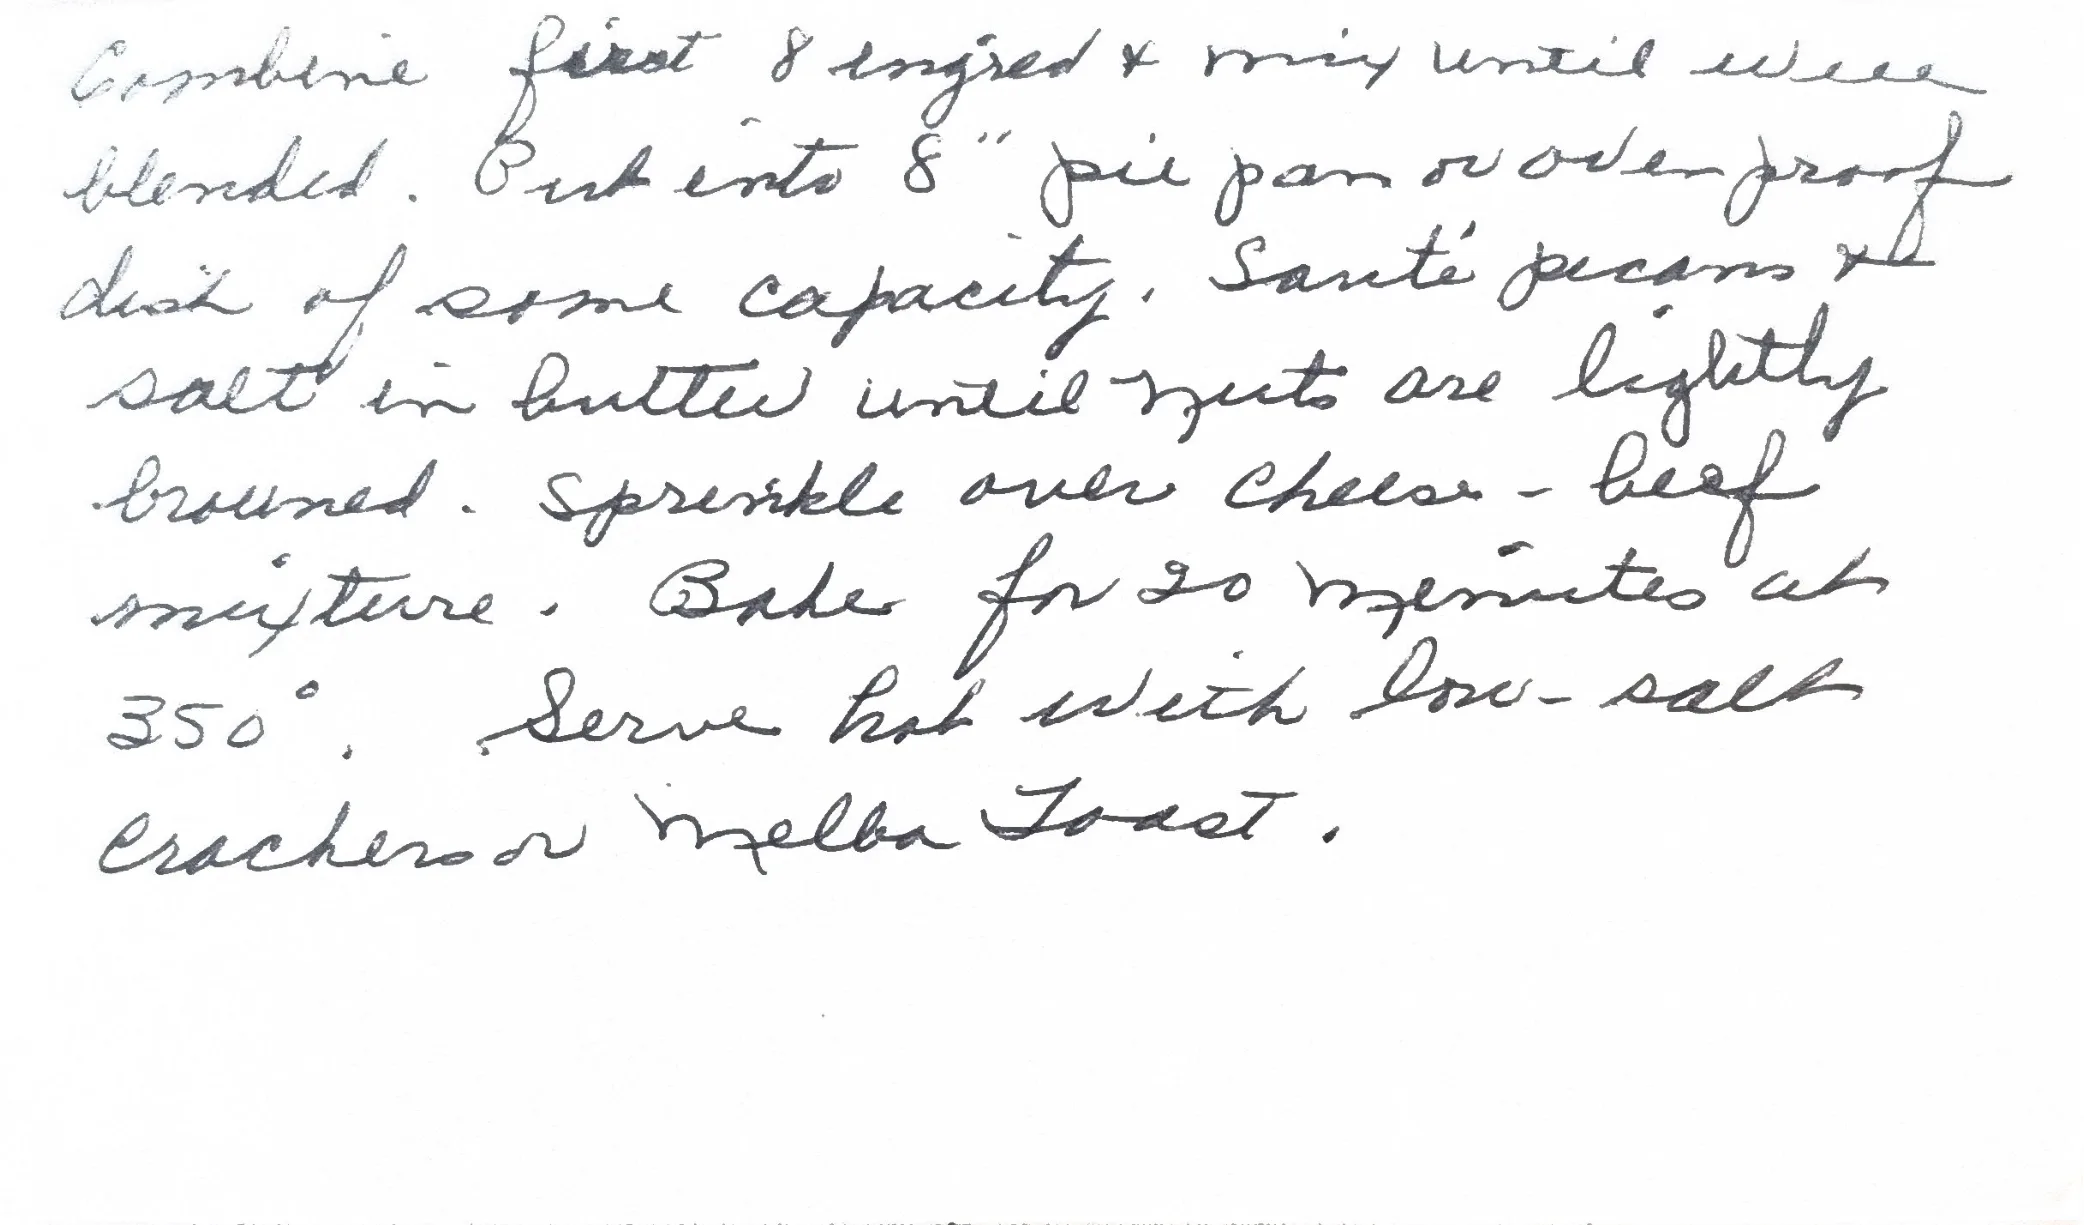 Combine first 8 ingred & mix until well
blended. Put into 8" pie pan or oven proof
dish of same capacity. Sauté pecans &
salt in butter until nuts are lightly
browned. Sprinkle over cheese - beef
mixture. Bake for 20 minutes at
350°. Serve hot with low-salt
crackers or Melba Toast.